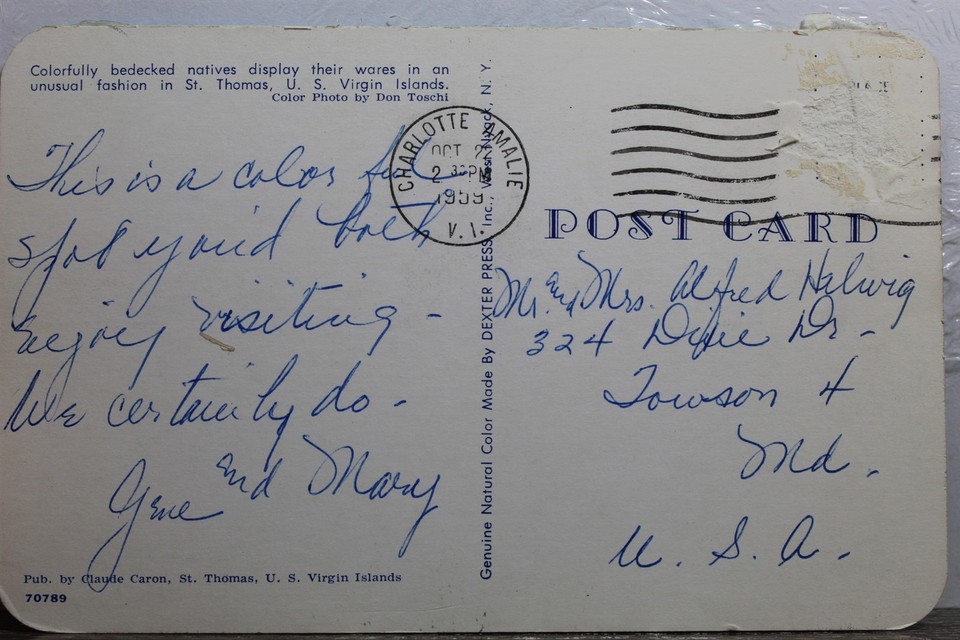 Colorfully bedecked natives display their wares in an
unusual fashion in St. Thomas, U. S. Virgin Islands.
Color Photo by Don Toschi
This is a color ful
spot you'd both
enjoy visiting -
We certainly do -
Gene and Mary
Pub. by Claude Caron, St. Thomas, U. S. Virgin Islands
70789
Genuine Natural Color Made By DEXTER PRESS, Inc., West Nyack, N. Y.
CHARLOTTE AMALIE
OCT
2 30PM
1959
V.I.
POST CARD
Mr. and Mrs. Alfred Helwig
324 Dixie Dr.
Towson 4
Md.
U. S. A.